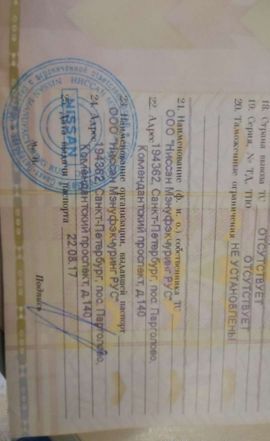 18. Страна вывоза ТС ОТСУТСТВУЕТ
19. Серия, № ТД, ТПО ОТСУТСТВУЕТ
20. Таможенные ограничения НЕ УСТАНОВЛЕНЫ
21. Наименование (ф. и. о.) собственника ТС
ООО "Ниссан Мэнуфэкчуринг РУС"
22. Адрес 194362, Санкт-Петербург, пос. Парголово,
Комендантский проспект, д.140
23. Наименование организации, выдавшей паспорт
ООО "Ниссан Мэнуфэкчуринг РУС"
24. Адрес 194362, Санкт-Петербург, пос. Парголово,
Комендантский проспект, д.140
25. Дата выдачи паспорта 22.08.17
М. П.
Подпись
NISSAN